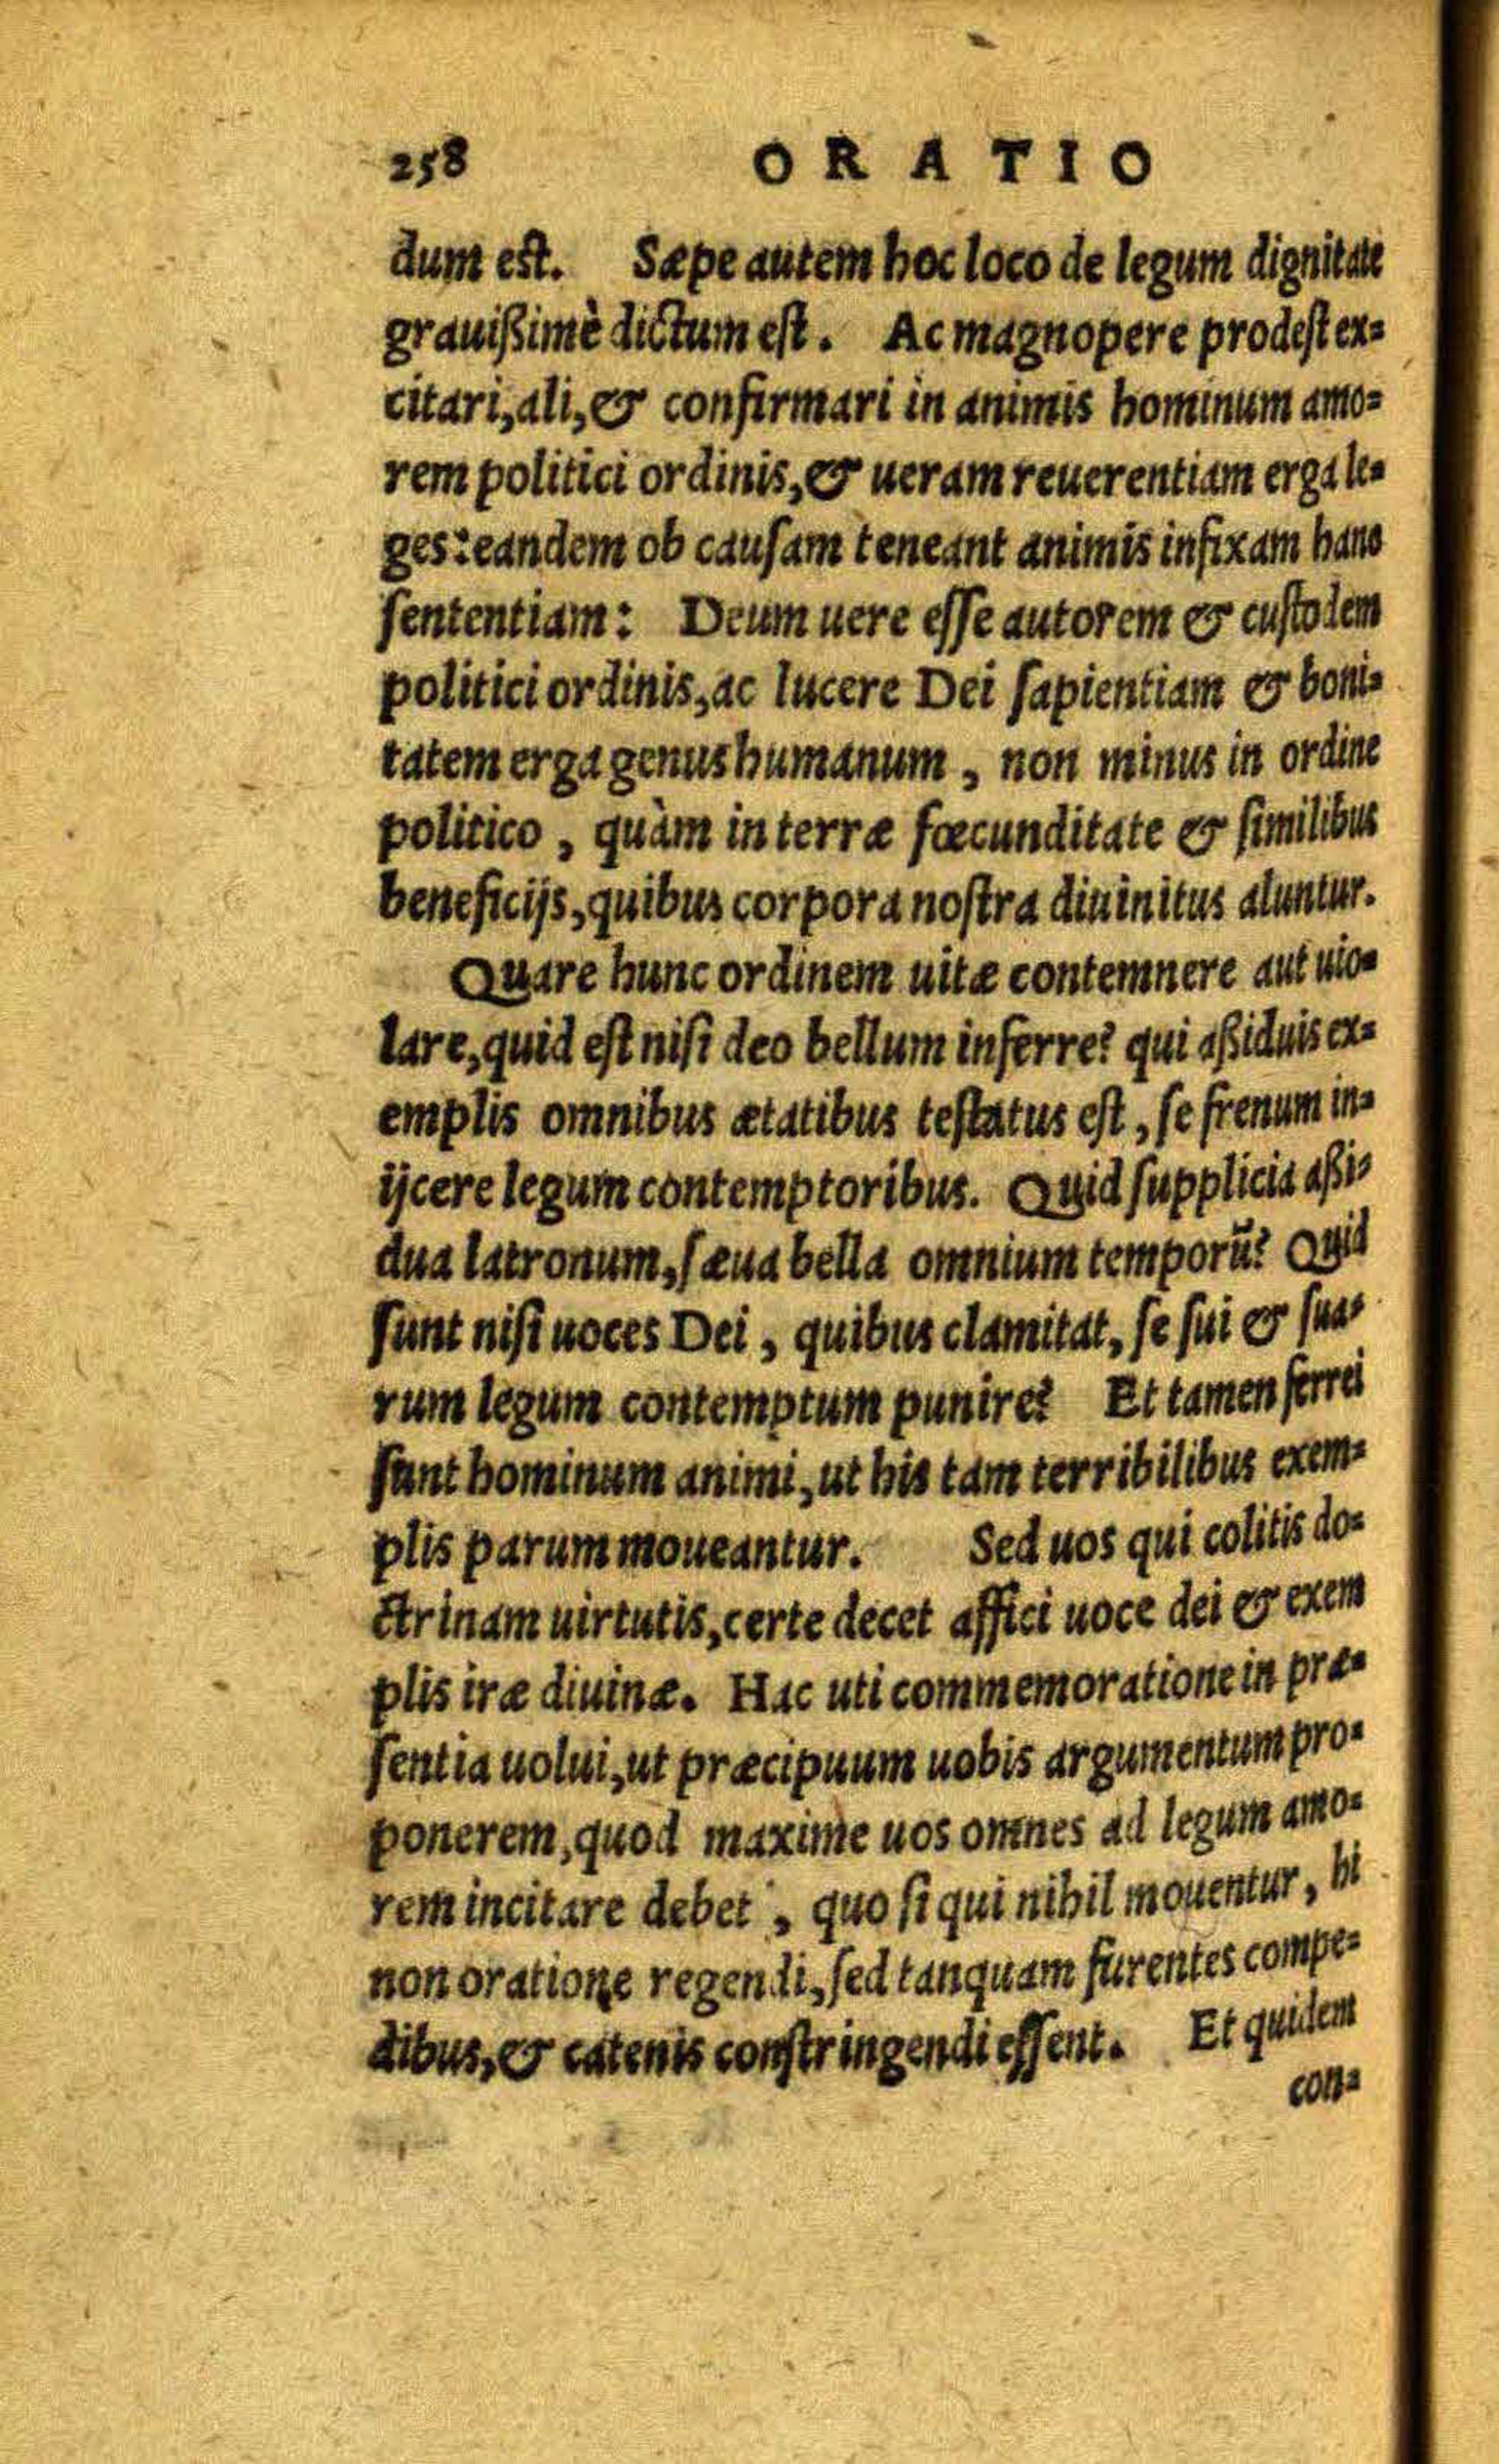 258 ORATIO
dum est. Sæpe autem hoc loco de legum dignitate
grauißimè dictum est. Ac magnopere prodest ex=
citari, ali, & confirmari in animis hominum amo=
rem politici ordinis, & ueram reuerentiam erga le=
ges: eandem ob causam teneant animis infixam hanc
sententiam: Deum uere esse autorem & custodem
politici ordinis, ac lucere Dei sapientiam & boni=
tatem erga genus humanum, non minus in ordine
politico, quàm in terræ fœcunditate & similibus
beneficijs, quibus corpora nostra diuinitus aluntur.
Quare hunc ordinem uitæ contemnere aut uio=
lare, quid est nisi deo bellum inferre? qui aßiduis ex=
emplis omnibus ætatibus testatus est, se frenum in=
ijcere legum contemptoribus. Quid supplicia aßi=
dua latronum, sæua bella omnium temporũ? Quid
sunt nisi uoces Dei, quibus clamitat, se sui & sua=
rum legum contemptum punire? Et tamen ferrei
sunt hominum animi, ut his tam terribilibus exem=
plis parum moueantur. Sed uos qui colitis do=
ctrinam uirtutis, certe decet affici uoce dei & exem
plis iræ diuinæ. Hac uti commemoratione in præ=
sentia uolui, ut præcipuum uobis argumentum pro=
ponerem, quod maxime uos omnes ad legum amo=
rem incitare debet, quo si qui nihil mouentur, hi
non oratione regendi, sed tanquam furentes compe=
dibus, & catenis constringendi essent. Et quidem
con=